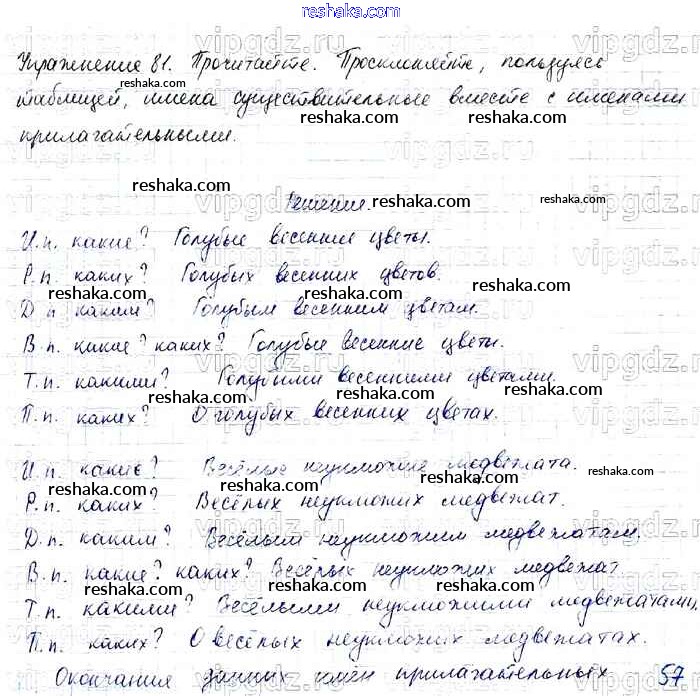 reshaka.com
Упражнение 81. Прочитайте. Просклоняйте, пользуясь
таблицей, имена существительные вместе с именами
прилагательными.
Решение.
И.п. какие? Голубые весенние цветы.
Р.п. каких? Голубых весенних цветов.
Д.п каким? Голубым весенним цветам.
В.п. какие? каких? Голубые весенние цветы.
Т.п. какими? Голубыми весенними цветами.
П.п. каких? О голубых весенних цветах.
И.п. какие? Весёлые неуклюжие медвежата.
Р.п. каких? Весёлых неуклюжих медвежат.
Д.п. каким? Весёлым неуклюжим медвежатам.
В.п. какие? каких? Весёлых неуклюжих медвежат
Т.п. какими? Весёлыми неуклюжими медвежатами,
П.п. каких? О весёлых неуклюжих медвежатах.
Окончания данных имен прилагательных 57